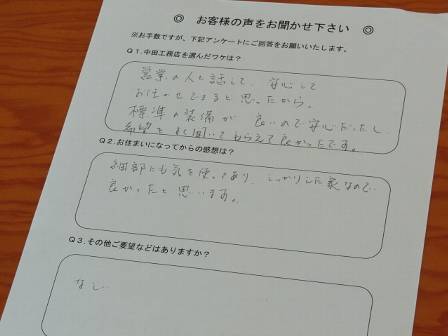 ◎ お客様の声をお聞かせ下さい ◎
※お手数ですが、下記アンケートにご回答をお願いいたします。
Q1.中田工務店を選んだワケは?
営業の人と話して、安心して
お任せできると思ったから。
標準の装備が良いので安心だったし
希望を聞いてもらえて良かったです。
Q2.お住まいになってからの感想は?
細部にも気を使ってあり、しっかりした家なので
良かったと思います。
Q3.その他ご要望などはありますか?
なし